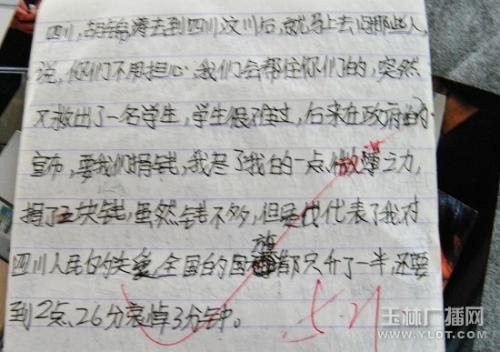 四川，胡锦涛去到四川汶川后，就马上去问那些人，
说，你们不用担心，我们会帮住你们的，突然
又救出了一名学生，学生很难过，后来在政府的
宣布，要我们捐钱，我尽了我的一点微薄之力，
捐了五块钱，虽然钱不多，但是也代表了我对
四川人民的关爱，全国的国旗都只升了一半，还要
到2点26分哀悼3分钟。
玉林广播网
WWW.YLDT.COM